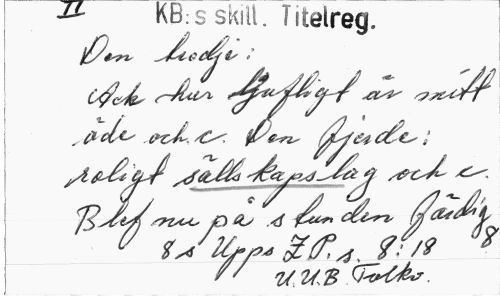 II
KB:s skill. Titelreg.
Den tredje:
Ack hur ljufligt är mitt
öde och.c. Den fjerde:
roligt sällskapslag och c.
Blef nu på stunden färdig
8 s Upps Z.P. s. 8:18 8
U.U.B Folkv.